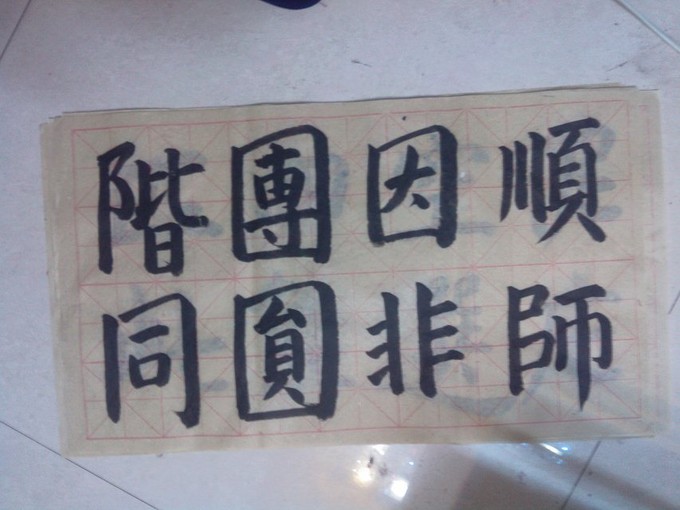 順師
因非
團圓
階同